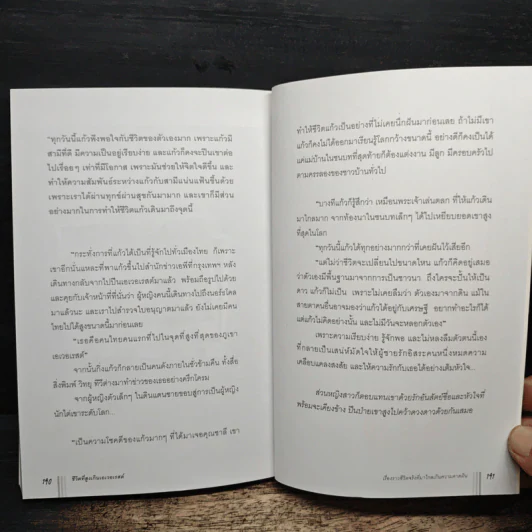 "ทุกวันนี้แก้วพึงพอใจกับชีวิตของตัวเองมาก เพราะแก้วมี
สามีที่ดี มีความเป็นอยู่เรียบง่าย และแก้วก็คงจะปีนเขาต่อ
ไปเรื่อยๆ เท่าที่มีโอกาส เพราะมันช่วยให้จิตใจดีขึ้น และ
ทำให้ความสัมพันธ์ระหว่างแก้วกับสามีแน่นแฟ้นขึ้นด้วย
เพราะเราได้ผ่านทุกข์ผ่านสุขกันมามาก และเขาก็มีส่วน
อย่างมากในการทำให้ชีวิตแก้วเดินมาถึงจุดนี้
"กระทั่งการที่แก้วได้เป็นที่รู้จักไปทั่วเมืองไทย ก็เพราะ
เขาอีกนั่นแหละที่พาแก้วขึ้นไปสำนักข่าวเอพีที่กรุงเทพฯ หลัง
เดินทางกลับจากไปปีนเอเวอเรสต์มาแล้ว พร้อมถือรูปไปด้วย
และคุยกับเจ้าหน้าที่ที่นั่นว่า ผู้หญิงคนนี้เดินทางไปถึงนอร์ธโคล
มาแล้วนะ และเราไปสำรวจใบอนุญาตมาแล้ว ยังไม่เคยมีคน
ไทยไปได้สูงขนาดนี้มาก่อนเลย
"เธอคือคนไทยคนแรกที่ไปในจุดที่สูงที่สุดของภูเขา
เอเวอเรสต์"
จากนั้นกิ่งแก้วก็กลายเป็นคนดังภายในชั่วข้ามคืน ทั้งสื่อ
สิ่งพิมพ์ วิทยุ ทีวีต่างมาทำข่าวของเธออย่างครึกโครม
จากผู้หญิงตัวเล็กๆ ในดินแดนชายขอบสู่การเป็นผู้หญิง
นักไต่เขาระดับโลก...
"เป็นความโชคดีของแก้วมากๆ ที่ได้มาเจอคุณชาลี เขา
190 ชีวิตที่สูงเกินเอเวอเรสต์
ทำให้ชีวิตแก้วเป็นอย่างที่ไม่เคยนึกฝันมาก่อนเลย ถ้าไม่มีเขา
แก้วก็คงไม่ได้ออกมาเรียนรู้โลกกว้างขนาดนี้ อย่างดีก็คงเป็นได้
แค่แม่บ้านในชนบทที่สุดท้ายก็ต้องแต่งงาน มีลูก มีครอบครัวไป
ตามครรลองของชาวบ้านทั่วไป
"บางทีแก้วก็รู้สึกว่า เหมือนพระเจ้าเล่นตลก ที่ให้แก้วเดิน
มาไกลมาก จากท้องนาในชนบทเล็กๆ ได้ไปเหยียบยอดเขาสูง
ที่สุดในโลก
"ทุกวันนี้แก้วได้ทุกอย่างมากกว่าที่เคยฝันไว้เสียอีก
"แต่ไม่ว่าชีวิตจะเปลี่ยนไปขนาดไหน แก้วก็คิดอยู่เสมอ
ว่าตัวเองมีพื้นฐานมาจากการเป็นชาวนา ถึงใครจะปั้นให้เป็น
ดาว แก้วก็ไม่เป็น เพราะไม่เคยลืมว่า ตัวเองมาจากดิน แม้ใน
สายตาคนอื่นอาจมองว่าแก้วได้อยู่กับเศรษฐี อยากทำอะไรก็ได้
แต่แก้วไม่คิดอย่างนั้น และไม่มีวันจะหลอกตัวเอง"
เพราะความเรียบง่าย รู้จักพอ และไม่หลงลืมตัวตนนี้เอง
ที่กลายเป็นเสน่ห์มัดใจให้ผู้ชายรักอิสระคนหนึ่งหมดความ
เคลือบแคลงสงสัย และให้ความรักกับเธอได้อย่างเต็มหัวใจ...
ส่วนหญิงสาวก็ตอบแทนเขาด้วยรักอันสัตย์ซื่อและหัวใจที่
พร้อมจะเคียงข้าง ปีนป่ายเขาสูงไปคว้าดวงดาวด้วยกันเสมอ
191